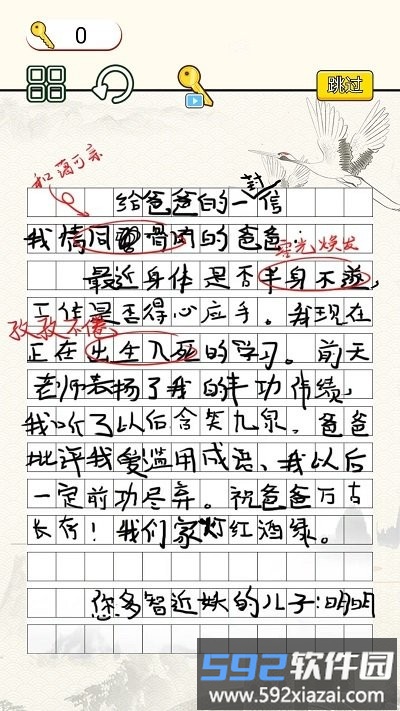 0
跳过
和蔼可亲
给爸爸的一封信
我情同骨肉的爸爸:
容光焕发
最近身体是否半身不遂,
工作是否得心应手。我现在
孜孜不倦
正在出生入死的学习。前天
老师表扬了我的丰功伟绩,
我听了以后含笑九泉。爸爸
批评我爱滥用成语、我以后
一定前功尽弃。祝爸爸万古
长存!我们家灯红酒绿。
您多智近妖的儿子:明明
592软件园
www.592xiazai.com